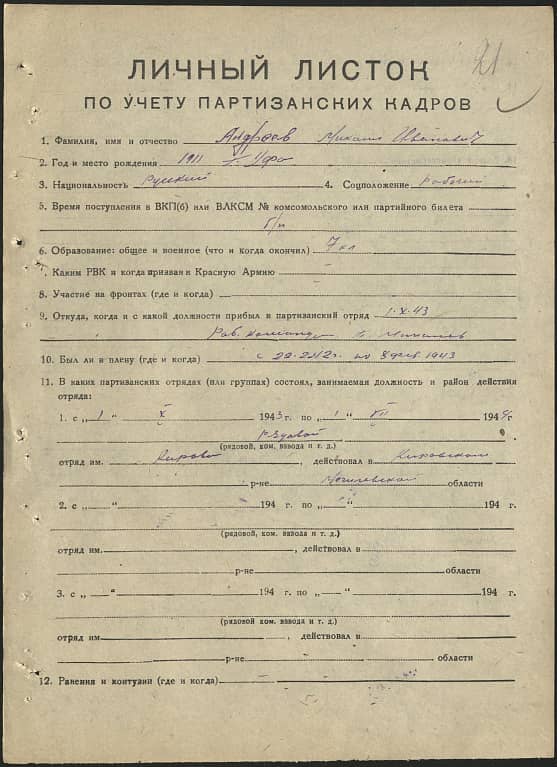 21
ЛИЧНЫЙ ЛИСТОК
ПО УЧЕТУ ПАРТИЗАНСКИХ КАДРОВ
1. Фамилия, имя и отчество Андреев Михаил Иванович
2. Год и место рождения 1911 г. Уфа
3. Национальность Русский 4. Соцположение рабочий
5. Время поступления в ВКП(б) или ВЛКСМ № комсомольского или партийного билета
б/п
6. Образование: общее и военное (что и когда окончил) 7 кл
7. Каким РВК и когда призван в Красную Армию —
8. Участие на фронтах (где и когда) —
9. Откуда, когда и с какой должности прибыл в партизанский отряд 1-X-43
Раб.
10. Был ли в плену (где и когда) с 1943
11. В каких партизанских отрядах (или группах) состоял, занимаемая должность и район действия
отряда:
1. с „ 1 “ X 1943 г. по „ 1 “ VII 1944 г.
Рядовой
(рядовой, ком. взвода и т. д.)
отряд им. Кирова, действовал в Кировском
р-не Могилевской области
2. с „ — “ 194 г. по „ “ 194 г.
(рядовой, ком. взвода и т. д.)
отряд им. , действовал в
р-не области
3. с „ — “ 194 г. по „ — “ 194 г.
(рядовой, ком. взвода и т. д.)
отряд им. , действовал в
р-не области
12. Ранения и контузии (где и когда)